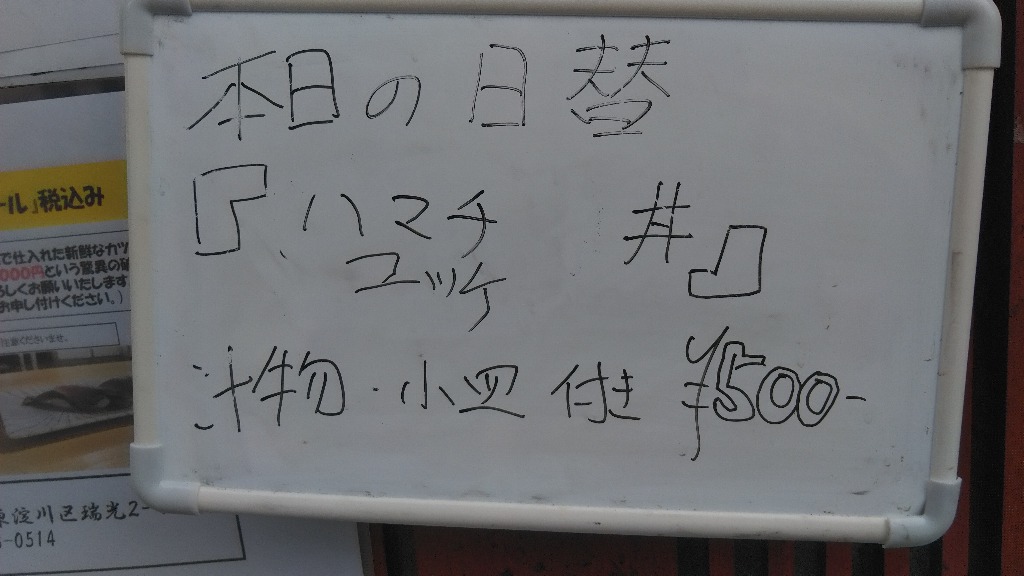 本日の日替
『ハマチ
ユッケ
丼』
汁物・小皿付き ¥500-
ール』税込み
で仕入れた新鮮なカツ
000円という驚異の
ろしくお願いいたします
お申し付けください。)
注意くださいませ。
東淀川区瑞光2-
-0514